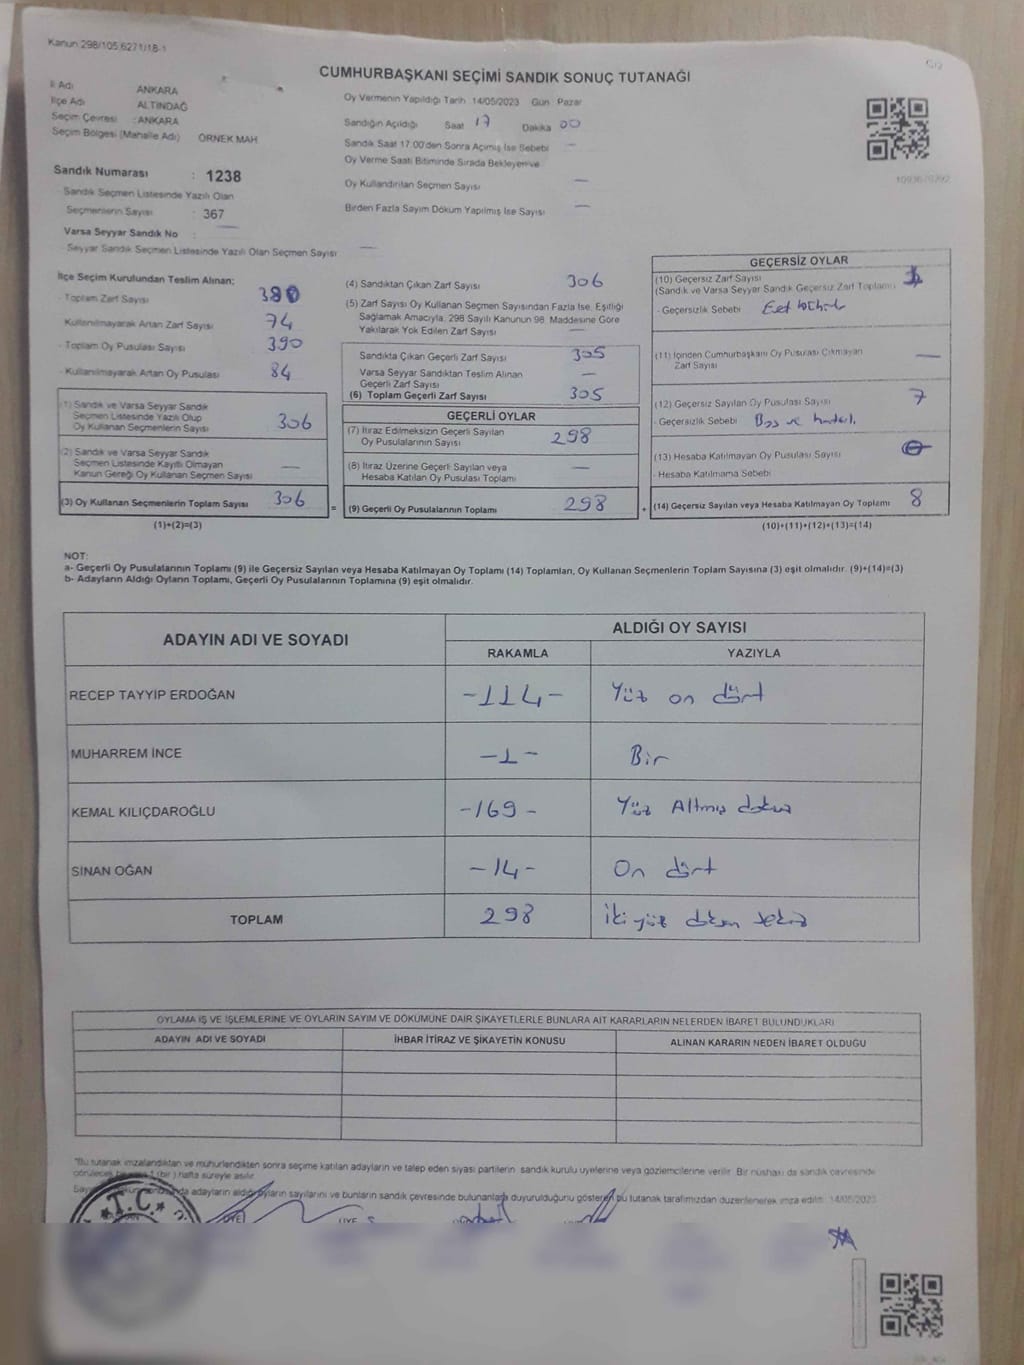 Kanun 298/105,6271/18-1
CUMHURBAŞKANI SEÇİMİ SANDIK SONUÇ TUTANAĞI
İl Adı ANKARA
İlçe Adı ALTINDAĞ
Seçim Çevresi : ANKARA
Seçim Bölgesi (Mahalle Adı) ÖRNEK MAH
Sandık Numarası : 1238
Sandık Seçmen Listesinde Yazılı Olan
Seçmenlerin Sayısı : 367
Varsa Seyyar Sandık No
- Seyyar Sandık Seçmen Listesinde Yazılı Olan Seçmen Sayısı —
Oy Vermenin Yapıldığı Tarih 14/05/2023 Gün Pazar
Sandığın Açıldığı Saat 17 Dakika 00
Sandık Saat 17.00'den Sonra Açımış İse Sebebi —
Oy Verme Saati Bitiminde Sırada Bekleyen ve
Oy Kullandırılan Seçmen Sayısı —
Birden Fazla Sayım Döküm Yapılmış İse Sayısı —
İlçe Seçim Kurulundan Teslim Alınan;
- Toplam Zarf Sayısı 380
Kullanılmayarak Artan Zarf Sayısı 74
- Toplam Oy Pusulası Sayısı 390
- Kullanılmayarak Artan Oy Pusulası 84
(1) Sandık ve Varsa Seyyar Sandık
Seçmen Listesinde Yazılı Olup
Oy Kullanan Seçmenlerin Sayısı 306
(2) Sandık ve Varsa Seyyar Sandık
Seçmen Listesinde Kayıtlı Olmayan
Kanun Gereği Oy Kullanan Seçmen Sayısı —
(3) Oy Kullanan Seçmenlerin Toplam Sayısı 306
(1)+(2)=(3)
(4) Sandıktan Çıkan Zarf Sayısı 306
(5) Zarf Sayısı Oy Kullanan Seçmen Sayısından Fazla İse, Eşitliği
Sağlamak Amacıyla; 298 Sayılı Kanunun 98. Maddesine Göre
Yakılarak Yok Edilen Zarf Sayısı —
Sandıkta Çıkan Geçerli Zarf Sayısı 305
Varsa Seyyar Sandıktan Teslim Alınan
Geçerli Zarf Sayısı —
(6) Toplam Geçerli Zarf Sayısı 305
GEÇERLİ OYLAR
(7) İtiraz Edilmeksizin Geçerli Sayılan
Oy Pusulalarının Sayısı 298
(8) İtiraz Üzerine Geçerli Sayılan veya
Hesaba Katılan Oy Pusulası Toplamı —
=
(9) Geçerli Oy Pusulalarının Toplamı 298
+
GEÇERSİZ OYLAR
(10) Geçersiz Zarf Sayısı
(Sandık ve Varsa Seyyar Sandık Geçersiz Zarf Toplamı)
- Geçersizlik Sebebi
(11) İçinden Cumhurbaşkanı Oy Pusulası Çıkmayan
Zarf Sayısı —
(12) Geçersiz Sayılan Oy Pusulası Sayısı 7
- Geçersizlik Sebebi Boş ve hatalı.
(13) Hesaba Katılmayan Oy Pusulası Sayısı
- Hesaba Katılmama Sebebi
(14) Geçersiz Sayılan veya Hesaba Katılmayan Oy Toplamı 8
(10)+(11)+(12)+(13)=(14)
NOT:
a- Geçerli Oy Pusulalarının Toplamı (9) ile Geçersiz Sayılan veya Hesaba Katılmayan Oy Toplamı (14) Toplamları, Oy Kullanan Seçmenlerin Toplam Sayısına (3) eşit olmalıdır. (9)+(14)=(3)
b- Adayların Aldığı Oyların Toplamı, Geçerli Oy Pusulalarının Toplamına (9) eşit olmalıdır.
ADAYIN ADI VE SOYADI ALDIĞI OY SAYISI
RAKAMLA YAZIYLA
RECEP TAYYİP ERDOĞAN -114- Yüz on dört
MUHARREM İNCE -1- Bir
KEMAL KILIÇDAROĞLU -169- Yüz Altmış dokuz
SİNAN OĞAN -14- On dört
TOPLAM 298 İki yüz doksan sekiz
OYLAMA İŞ VE İŞLEMLERİNE VE OYLARIN SAYIM VE DÖKÜMÜNE DAİR ŞİKAYETLERLE BUNLARA AİT KARARLARIN NELERDEN İBARET BULUNDUKLARI
ADAYIN ADI VE SOYADI İHBAR İTİRAZ VE ŞİKAYETİN KONUSU ALINAN KARARIN NEDEN İBARET OLDUĞU
"Bu tutanak imzalandıktan ve mühürlendikten sonra seçime katılan adayların ve talep eden siyasi partilerin sandık kurulu üyelerine veya gözlemcilerine verilir. Bir nüshası da sandık çevresinde
görülecek bir yere 1 (bir) hafta süreyle asılır.
adayların aldığı oyların sayılarını ve bunların sandık çevresinde bulunanlara duyurulduğunu gösteren bu tutanak tarafımızdan düzenlenerek imza edildi. 14/05/2023
T.C.
ÜYE ÜYE